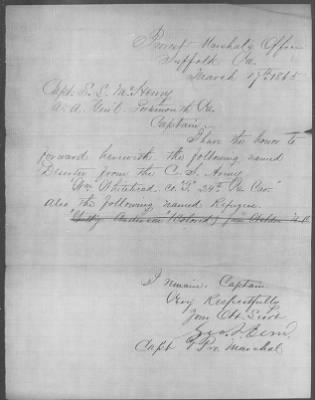 Provost Marshal's Office
Suffolk Va.
March 17th 1865
Capt.
A. A. Genl. Portsmouth Va.
Captain
I have the honor to
forward herewith the following named
Deserter from the C. S. Army
Wm Whitehead. Co. "I" 24th Va Cav.
Also the following named Refugee.
Anderson (Colored) from
I remain. Captain
Very Respectfully
Your Obt Servt
Capt & Pro. Marshal